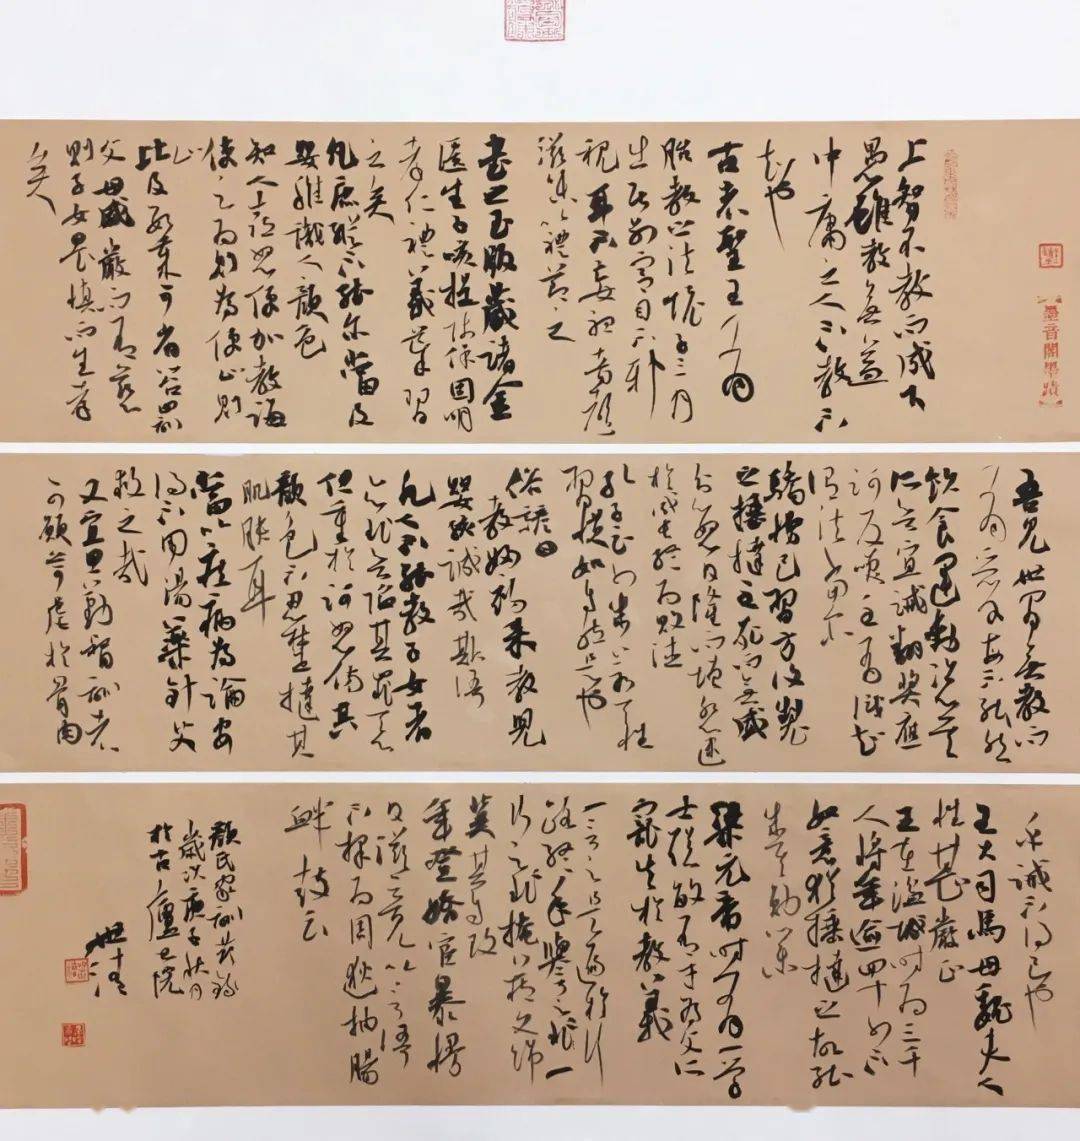 墨音閣墨蹟
上智不教而成下
愚雖教無益
中庸之人不教不
知也
古者聖王有
胎教之法懷子三月
出居別宮目不邪
視耳不妄聽音聲
滋味以禮節之
書之玉版藏諸金
匱生子咳提師保固明
孝仁禮義導習
之矣
凡庶縱不能爾當及
嬰稚識人顏色
知人喜怒便加教誨
使之為則為使止則
止
比及數歲可省笞罰
父母威嚴而有慈
則子女畏慎而生孝
矣
吾見世間無教而
有愛每不能然
飲食運為恣其
所欲宜誡翻獎應
訶反笑至有識知
謂法當爾
驕慢已習方復制
之捶撻至死而無威
忿怒日隆而增怨逮
於成長終為敗德
孔子云少成若天性
習慣如自然是也
俗諺曰
教婦初來教兒
嬰孩誠哉斯語
凡人不能教子女者
亦非欲陷其罪惡
但重於訶怒傷其
顏色不忍楚撻其
肌膚耳
當以疾病為諭安
得不用湯藥針艾
救之哉
又宜思勤督訓者
可願苛虐於骨肉
乎誠不得已也
王大司馬母魏夫人
性甚嚴正
王在湓城時為三千
人將年逾四十少不
如意猶捶撻之故能
成其勳業
梁元帝時有一學
士聰敏有才為父所
寵失於教義
一言之是遍於行
路終年譽之一
行之非掩藏文飾
冀其自改
年登婚宦暴慢
日滋竟以言語
不擇為周逖抽腸
釁鼓云
顏氏家訓節錄
歲次庚子秋月
於古廬書院